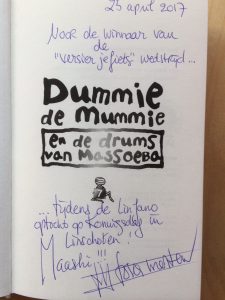 25 april 2017
Voor de winnaar van
de
"versier je fiets" wedstrijd...
Dummie
de Mummie
en de drums
van Massoeba
... tijdens de Linfano
optocht op Koningsdag in
Linschoten!
Maashi!!!
Tosca Menten